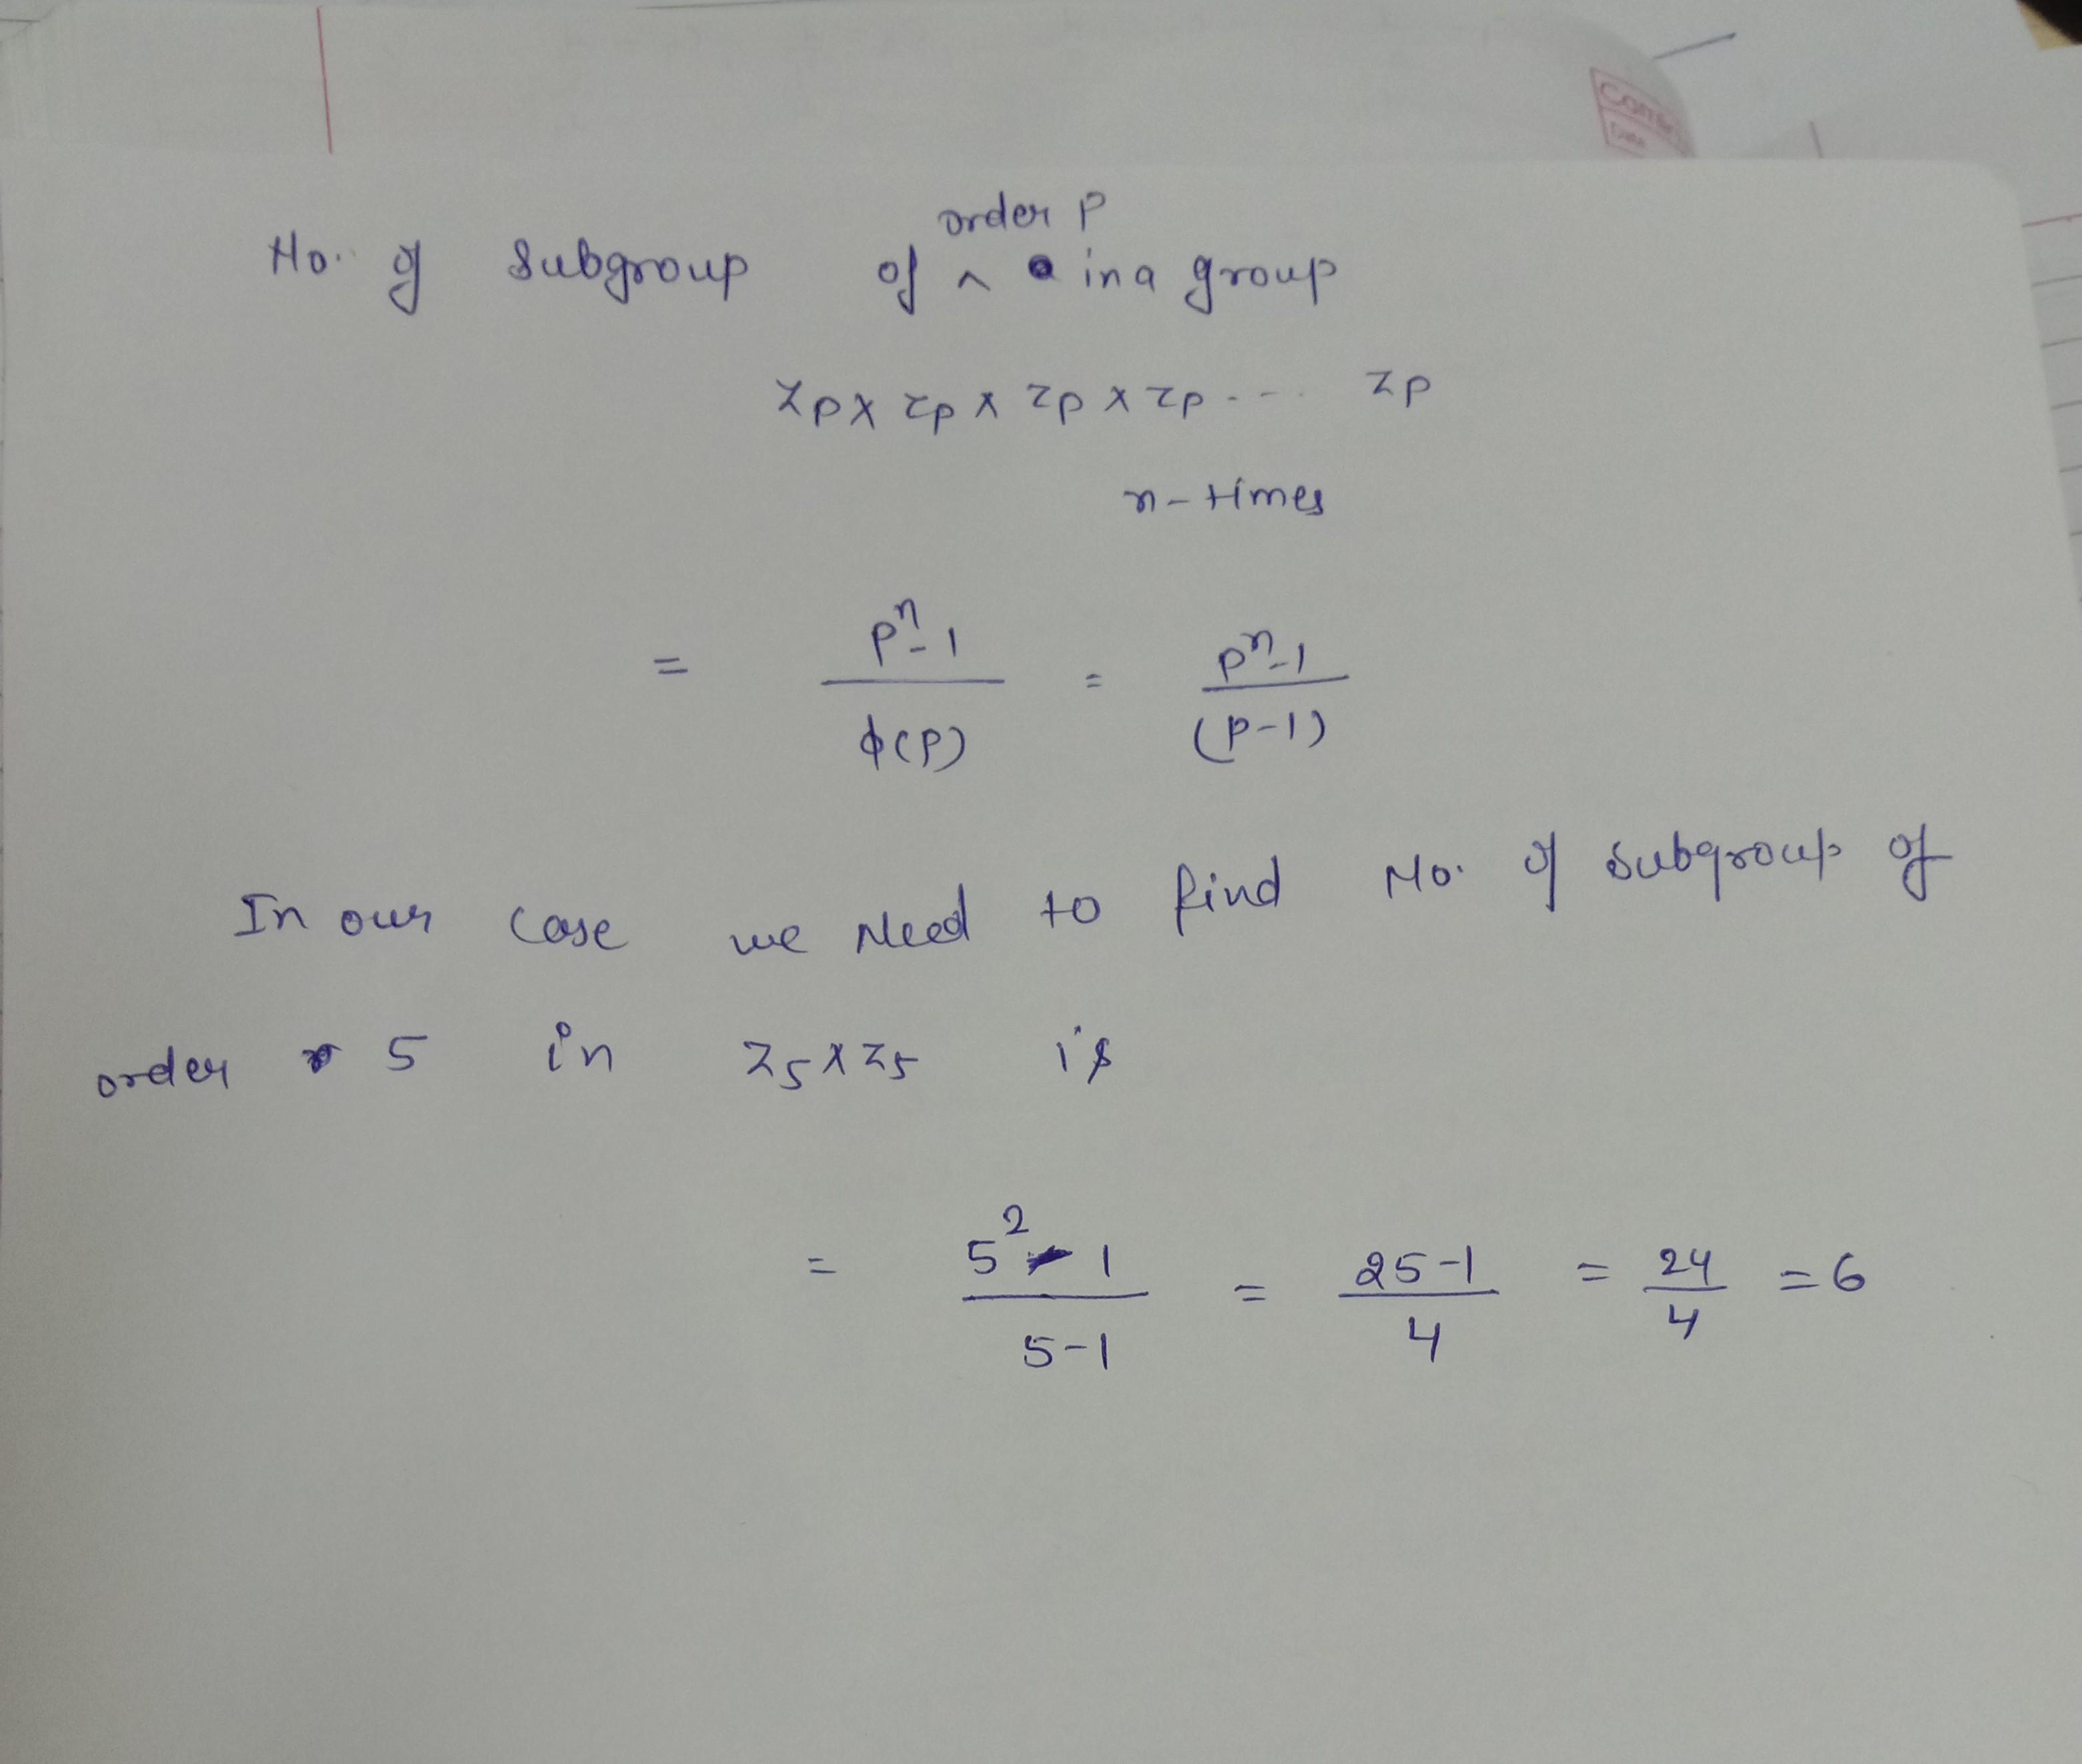 Com
Date
No. of subgroup of ^ order P in a group
Zp x Zp x Zp x Zp - - - . Zp
n - times
= p^n - 1 / φ(p) = p^n - 1 / (p-1)
In our case we Need to find No. of subgroup of
order 5 in Z5 x Z5 is
= 5^2 - 1 / 5-1 = 25-1 / 4 = 24 / 4 = 6